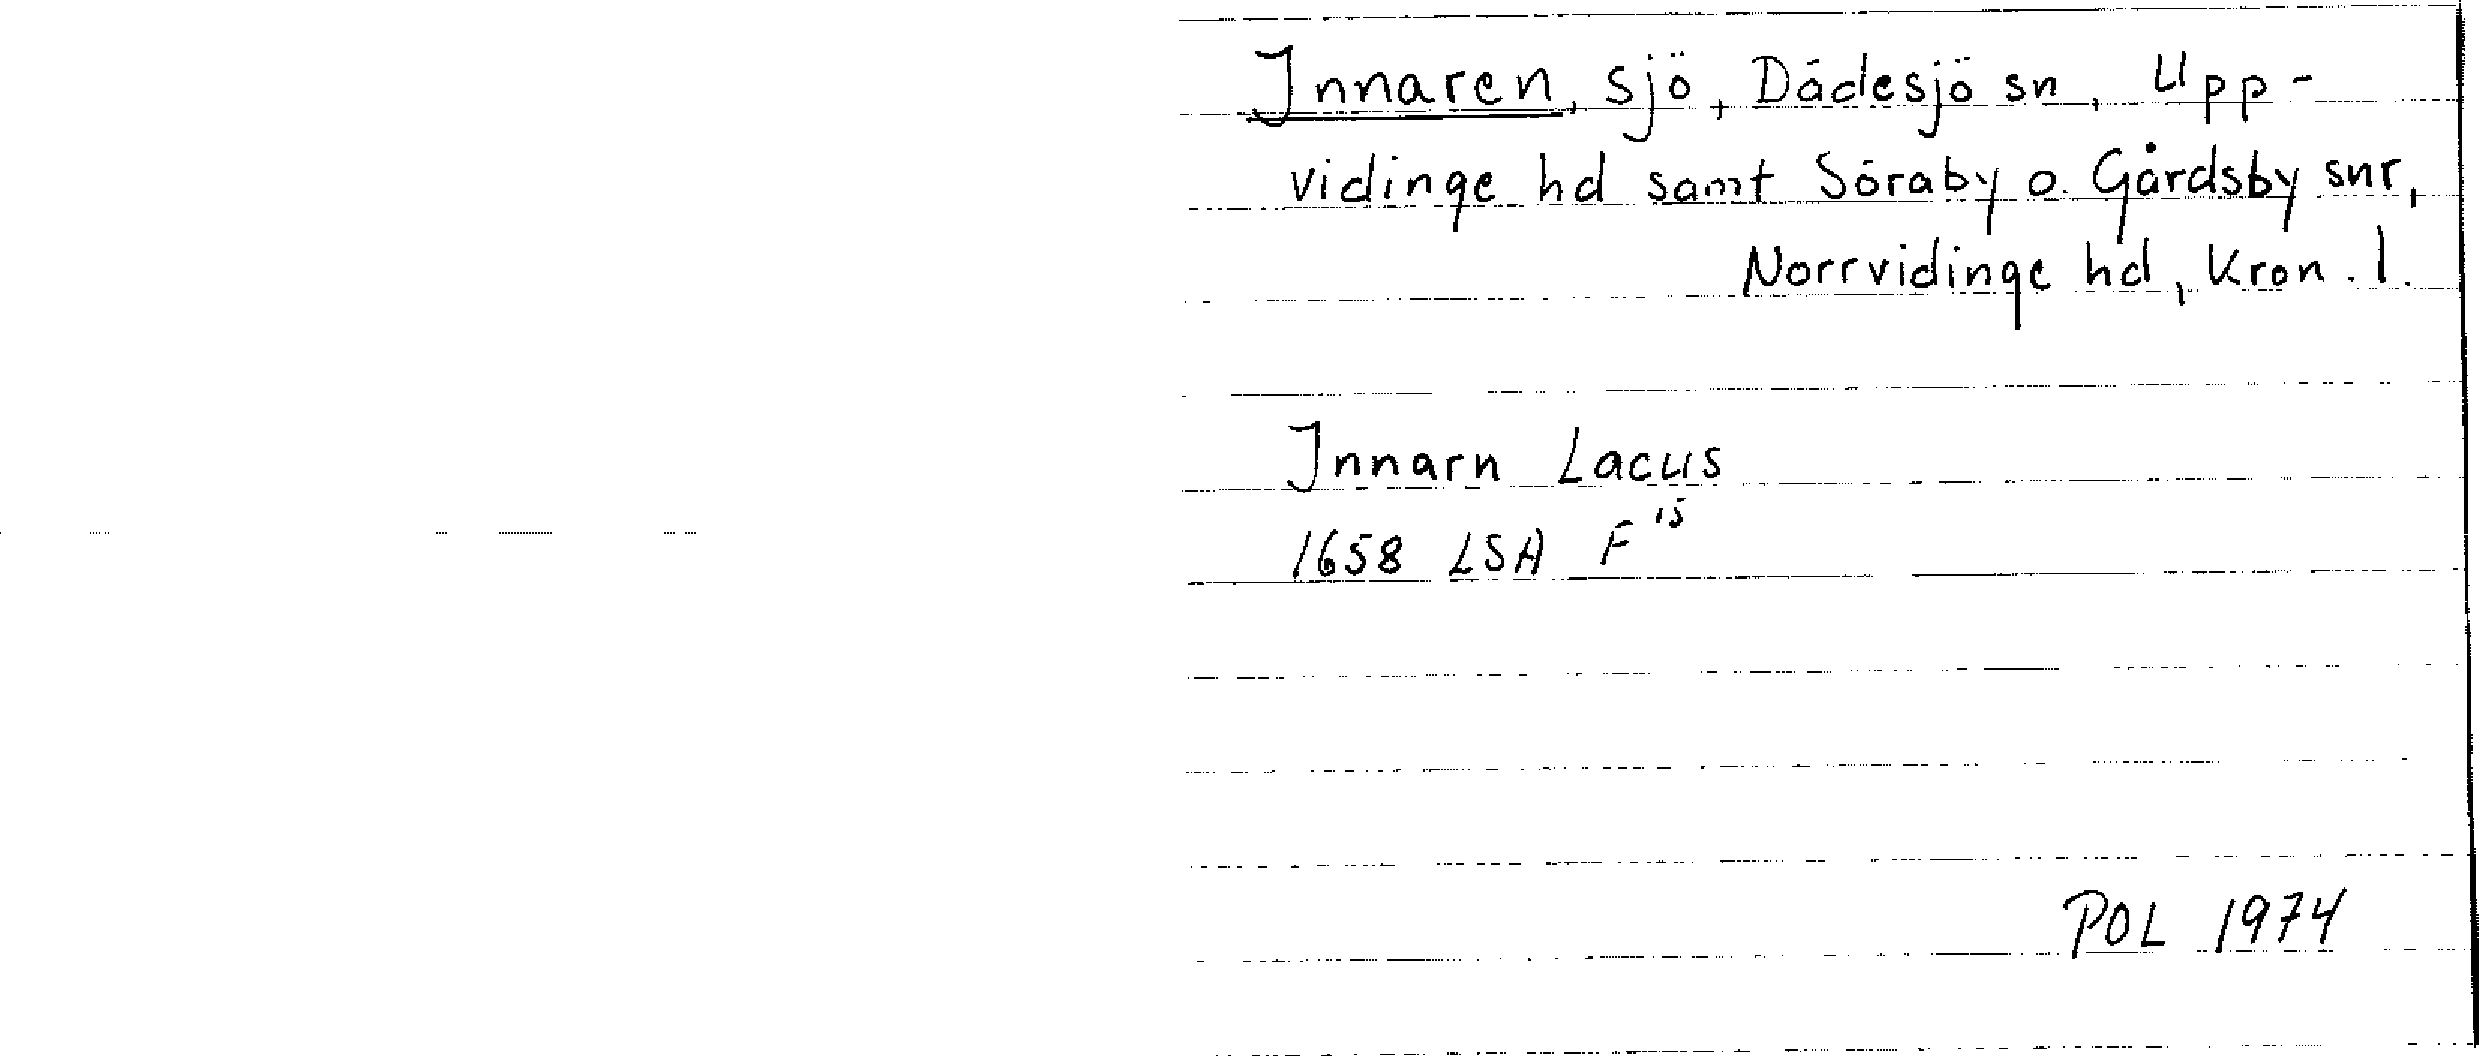 Innaren, sjö, Dädesjö sn, Upp-
vidinge hd samt Söraby o. Gårdsby snr,
Norrvidinge hd, Kron. l.
Innarn Lacus
1658 LSA F 15
POL 1974